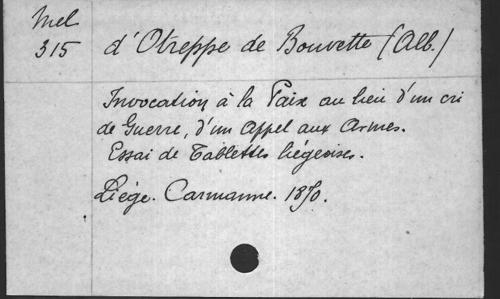 Mel
315
d'Otreppe de Bouvette (Alb.)
Invocation à la Paix au lieu d'un cri
de Guerre, d'un Appel aux Armes.
Essai de Tablettes liégeoises.
Liége. Carmanne. 1870.